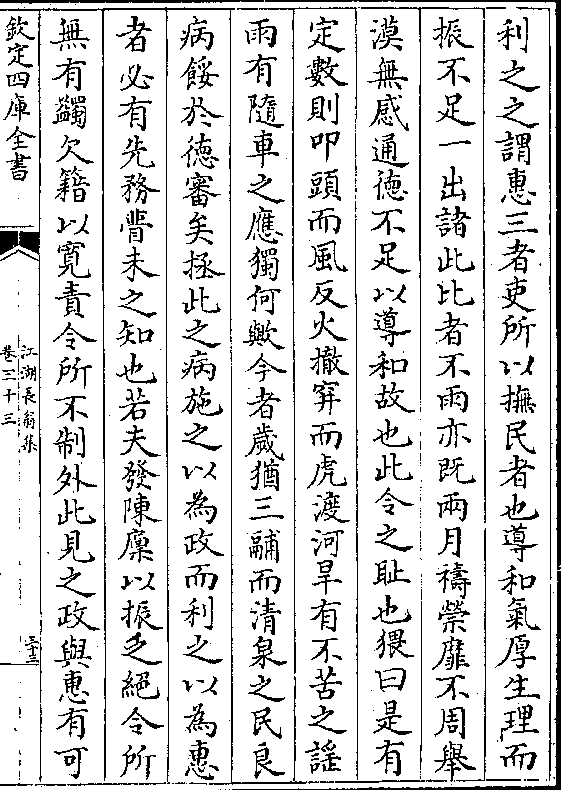 利之之謂惠三者吏所以撫民者也導和氣厚生理而
振不足一出諸此比者不雨亦既兩月禱禜靡不周舉
漠無感通徳不足以導和故也此令之耻也猥曰是有
定數則叩頭而風反火撤穽而虎渡河旱有不苦之謡
雨有隨車之應獨何歟今者歳猶三鬴而清泉之民良
病餒於徳審矣拯此之病施之以為政而利之以為惠
者必有先務瞢未之知也若夫發陳廩以振乏絶令所
無有蠲欠籍以寛責令所不制外此見之政與惠有可
欽定四庫全書
江湖長翁集
卷三十三
三十三